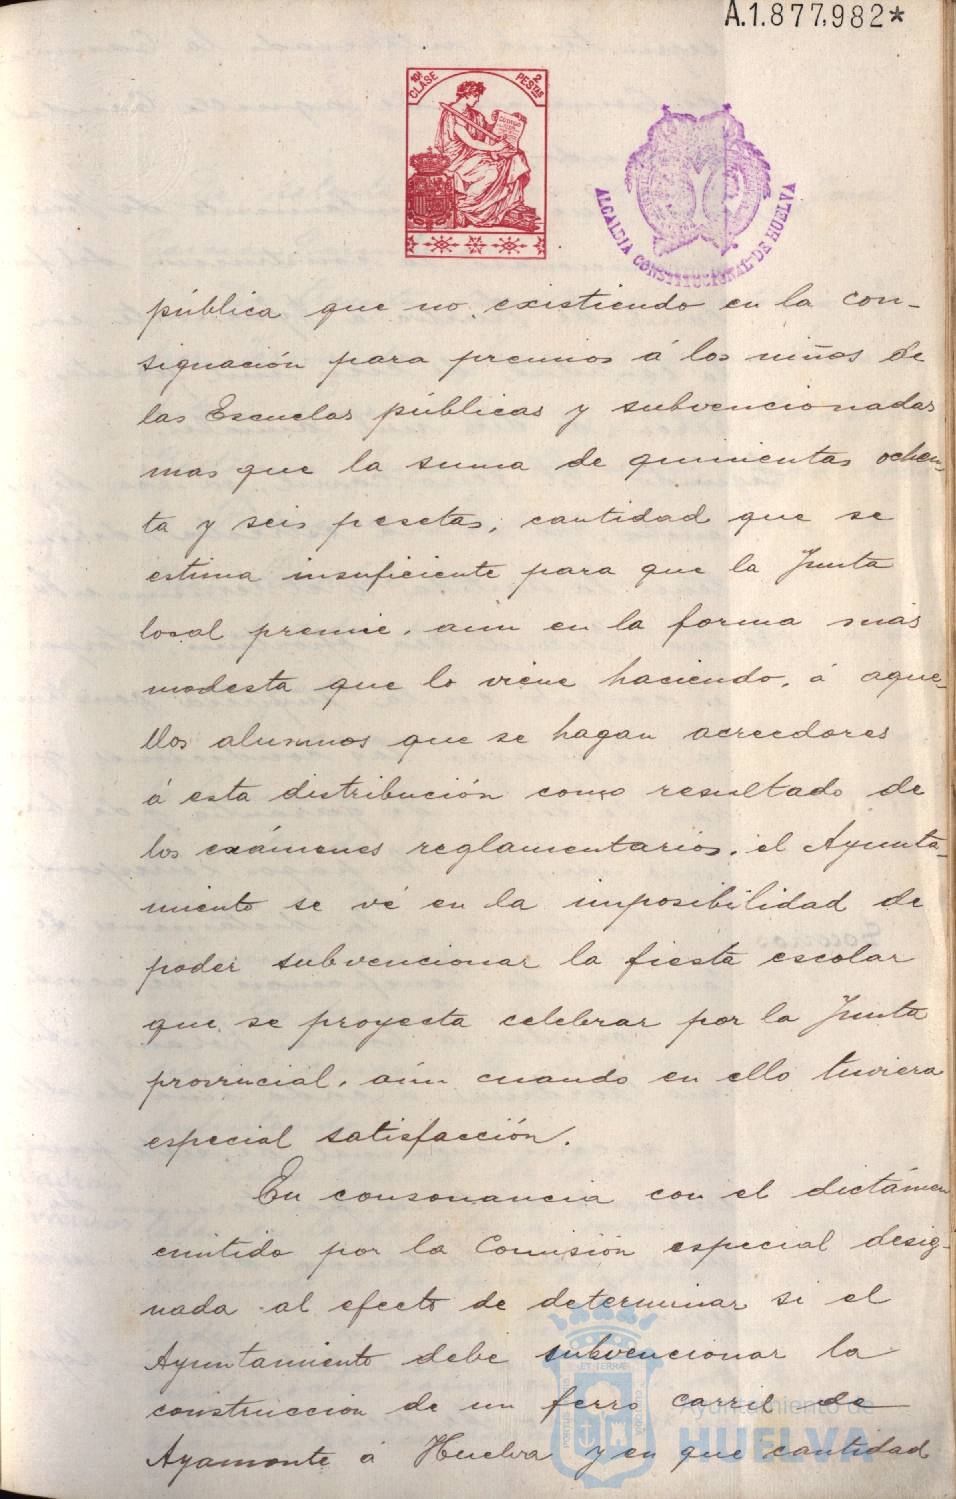 A.1.877,982*
10ª CLASE
2 PESTAS
ALCALDIA CONSTITUCIONAL DE HUELVA
pública que no existiendo en la con-
signación para premios á los niños de
las Escuelas públicas y subvencionadas
mas que la suma de quinientas ochen-
ta y seis pesetas, cantidad que se
estima insuficiente para que la Junta
local premie, aún en la forma más
modesta que lo viene haciendo, á aque-
llos alumnos que se hagan acreedores
á esta distribución como resultado de
los exámenes reglamentarios, el Ayunta-
miento se vé en la imposibilidad de
poder subvencionar la fiesta escolar
que se proyecta celebrar por la Junta
provincial, aún cuando en ello tuviera
especial satisfacción.
En consonancia con el dictámen
emitido por la Comisión especial desig-
nada al efecto de determinar si el
Ayuntamiento debe subvencionar la
construccion de un ferro carril de
Ayamonte á Huelva y en que cantidad
Ayuntamiento de
HUELVA